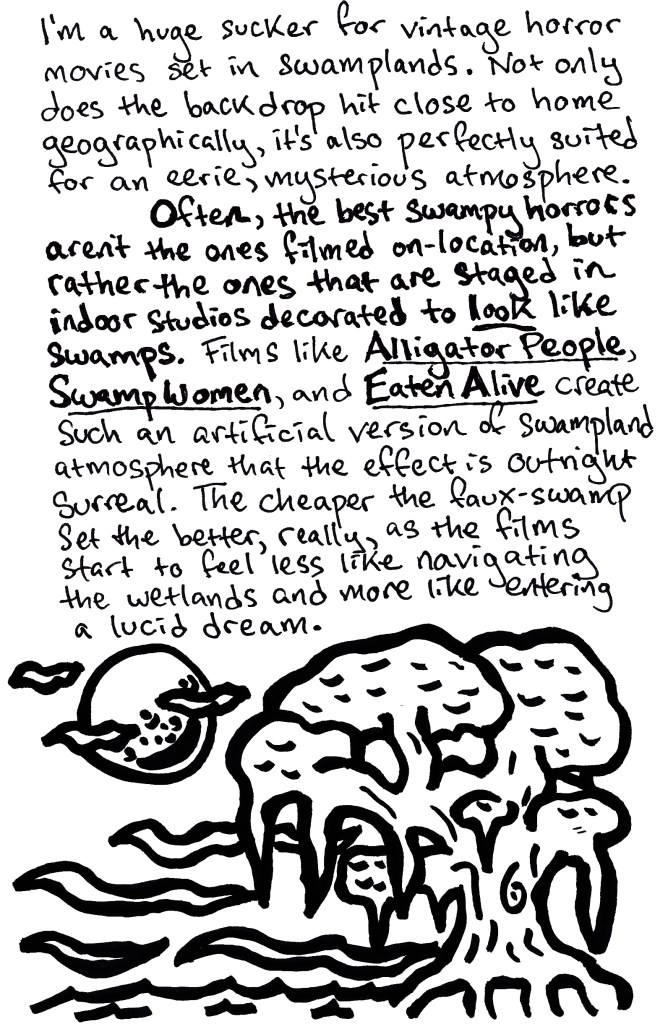 I'm a huge sucker for vintage horror
movies set in swamplands. Not only
does the backdrop hit close to home
geographically, it's also perfectly suited
for an eerie, mysterious atmosphere.
Often, the best swampy horrors
aren't the ones filmed on-location, but
rather the ones that are staged in
indoor studios decorated to look like
swamps. Films like Alligator People,
Swamp Women, and Eaten Alive create
such an artificial version of swampland
atmosphere that the effect is outright
surreal. The cheaper the faux-swamp
set the better, really, as the films
start to feel less like navigating
the wetlands and more like entering
a lucid dream.